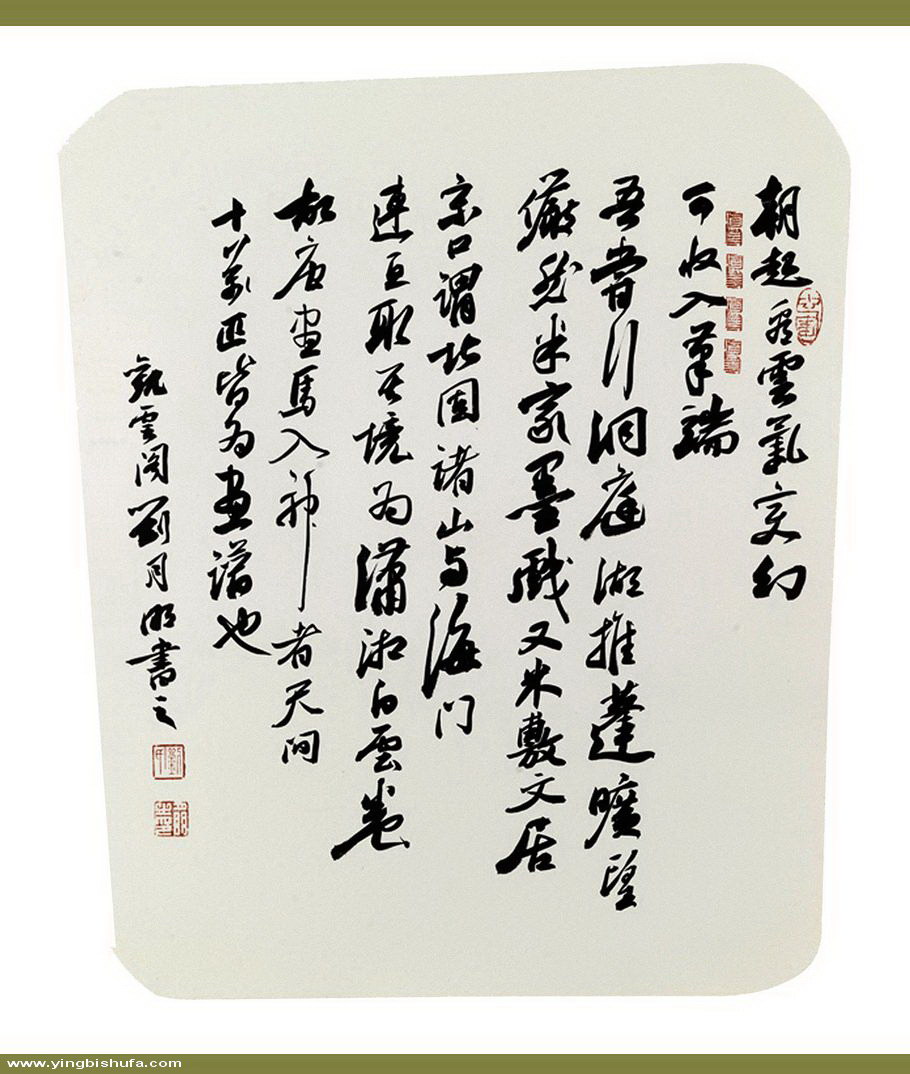 朝起看雲氣变幻
可收入筆端
吾嘗行洞庭湖推蓬曠望
儼然米家墨戲又米敷文居
京口謂北固諸山与海门
連亘取其境为瀟湘白雲卷
故唐畫馬入神者天闲
十萬匹皆为畫譜也
觀雲阁劉月卯書之
www.yingbishufa.com